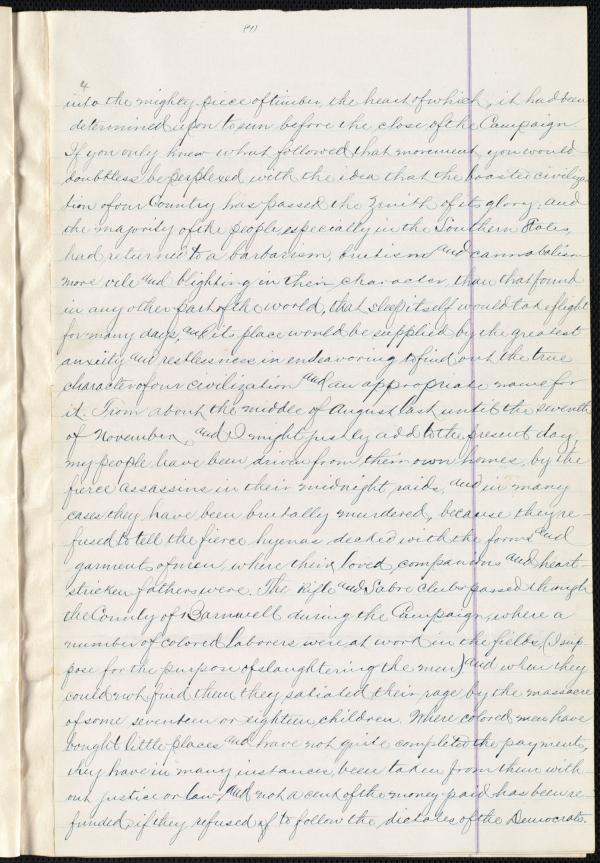 4
into the mighty piece of timber, the heart of which, it had been
determined upon to sun before the close of the Campaign.
If you only knew what followed that movement, you would
doubtless be perplexed with the idea that the boasted civiliza-
tion of our Country has passed the Zenith of its glory; and
the majority of the people, especially in the Southern States,
had returned to a barbarism, brutism and cannabalism
more vile and blighting in their character, than that found
in any other part of the world, that sleep itself would take flight
for many days, and its place would be supplied by the greatest
anxiety and restlessness in endeavoring to find out the true
character of our civilization and an appropriate name for
it. From about the middle of August last until the seventh
of November, and I might justly add to the present day,
my people have been driven from their own homes, by the
fierce assassins in their midnight raids, and in many
cases they have been brutally murdered, because they re-
fused to tell the fierce hyenas decked with the forms and
garments of men, where their loved companions and heart-
stricken fathers were. The Rifle and Sabre Clubs passed through
the County of Barnwell during the Campaign, where a
number of colored laborers were at work in the fields, (I sup-
pose for the purpose of slaughtering the men) and when they
could not find them they satiated their rage by the massacre
of some seventeen or eighteen children. Where colored men have
bought little places and have not quite completed the payments,
they have in many instances, been taken from them with-
out justice or law, and not a cent of the money paid has been re-
funded, if they refused to follow the dictates of the Democrats.